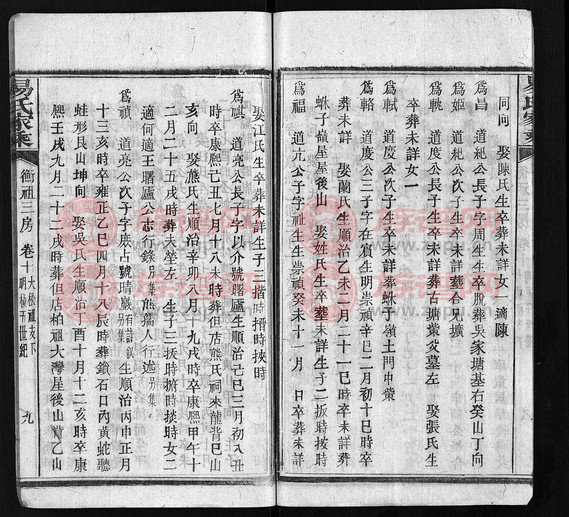 同向 娶陳氏生卒葬未詳女一適陳
爲昌 道紀公長子字周生生卒脫葬吳家塘基右癸山丁向
爲姬 道紀公次子生卒未詳葬合兄壙
爲軏 道度公長子生卒未詳葬古塘葉父墓左 娶張氏生
卒葬未詳女一
爲軾 道度公次子生卒未詳葬蚨子嶺土門中
爲輅 道度公三子字在賓生明崇禎辛巳二月初十巳時卒
葬未詳 娶蘭氏生順治乙未二月二十一巳時卒未詳葬
蚨子嶺屋後山 娶姓氏生卒葬未詳生子二扳時按時
爲福 道元公子字祉生生崇禎癸未十一月 日卒葬未詳
娶江氏生卒葬未詳生子三揩時搢時挾時
爲祺 道亮公長子字以介號曙廬生順治己巳三月初八丑
時卒康熙己丑七月十八未時葬但店熊氏祠來龍背巳山
亥向 娶熊氏生順治辛卯八月 九戌時卒康熙甲午十
二月二十五戌時葬夫塋左 生子三扳時擠時掞時女二
適何適王曙廬公志行錄別集熊孺人行述別集
爲禎 道亮公次子字康占號晴巖 生順治丙申正月
十三亥時卒雍正乙巳四月十八辰時葬鎖石口內黃蛇聽
蛙形艮山坤向 娶吳氏生順治丁酉十月十二亥時卒康
熙壬戌九月二十二戌時葬但店柏祖大灣屋後山首乙山
易氏家乘 衡祖三房 卷十 大松祖支下 世紀 九